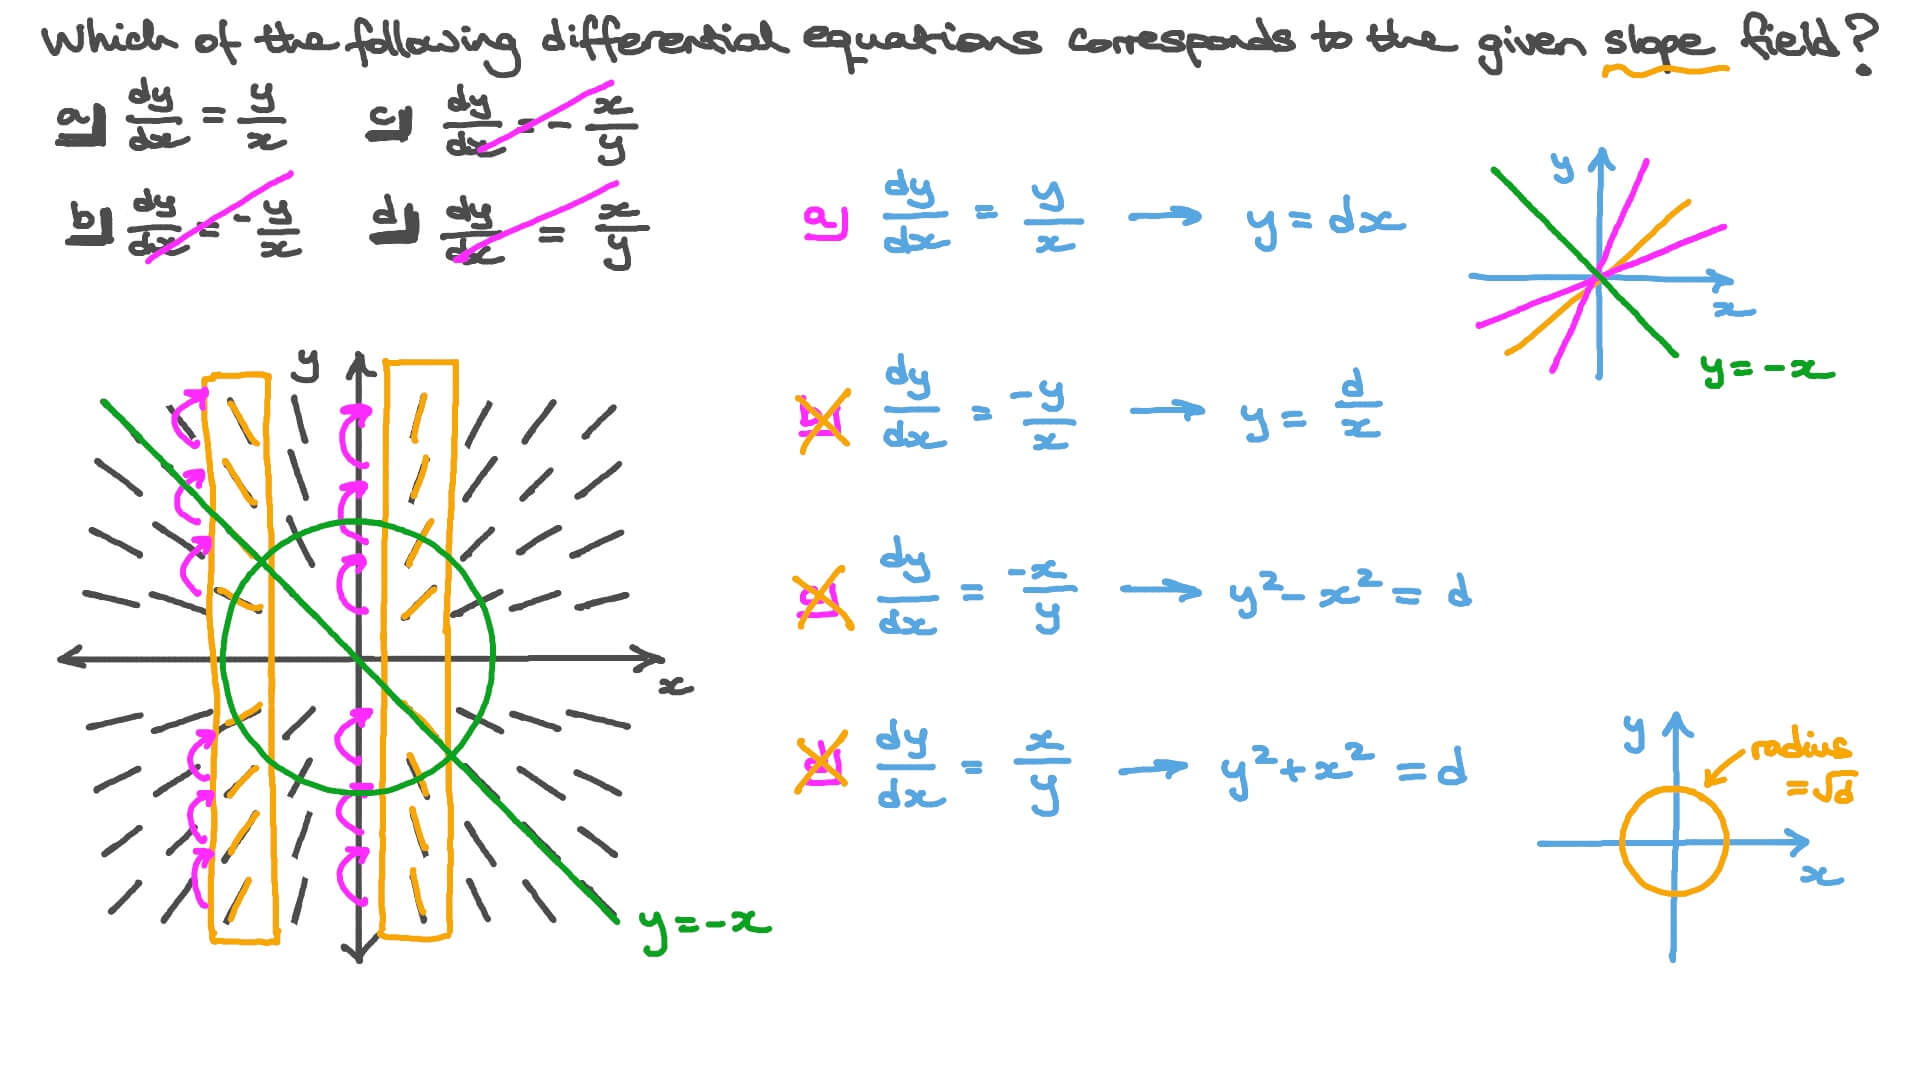 Which of the following differential equations corresponds to the given slope field?
a) dy/dx = y/x
c) dy/dx = - x/y
b) dy/dx = - y/x
d) dy/dx = x/y
a) dy/dx = y/x → y = dx
b) dy/dx = -y/x → y = d/x
c) dy/dx = -x/y → y² - x² = d
d) dy/dx = x/y → y² + x² = d
y
x
y = -x
y
x
y = -x
y
x
radius
= √d